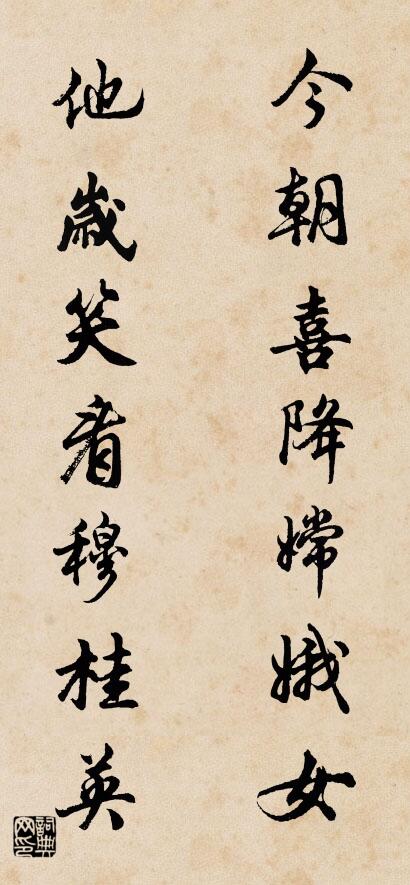 今朝喜降嫦娥女
他歲笑看穆桂英
詞典网印